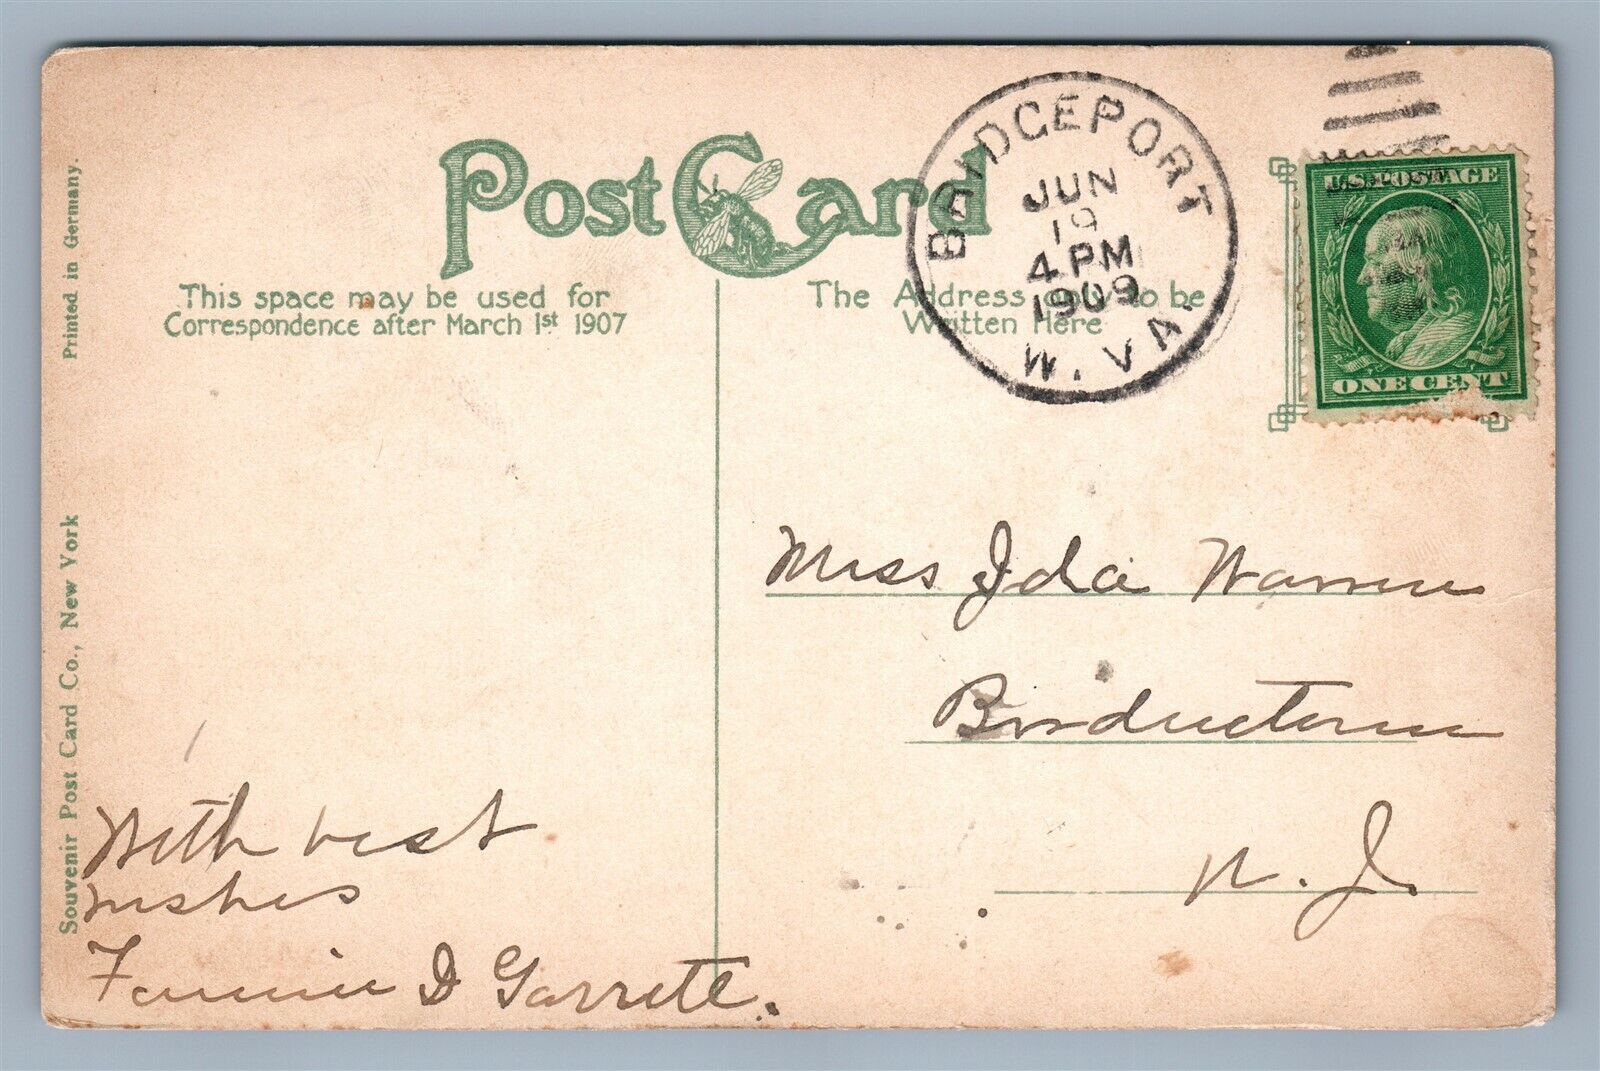 Post Card
This space may be used for
Correspondence after March 1st 1907
The Address only to be
Written Here
BRIDGEPORT
JUN
19
4 PM
1909
W. VA.
U.S. POSTAGE
ONE CENT
Printed in Germany.
Souvenir Post Card Co., New York
Miss Ida Warren
N. J.
With best
wishes
Fannie D Garrett.